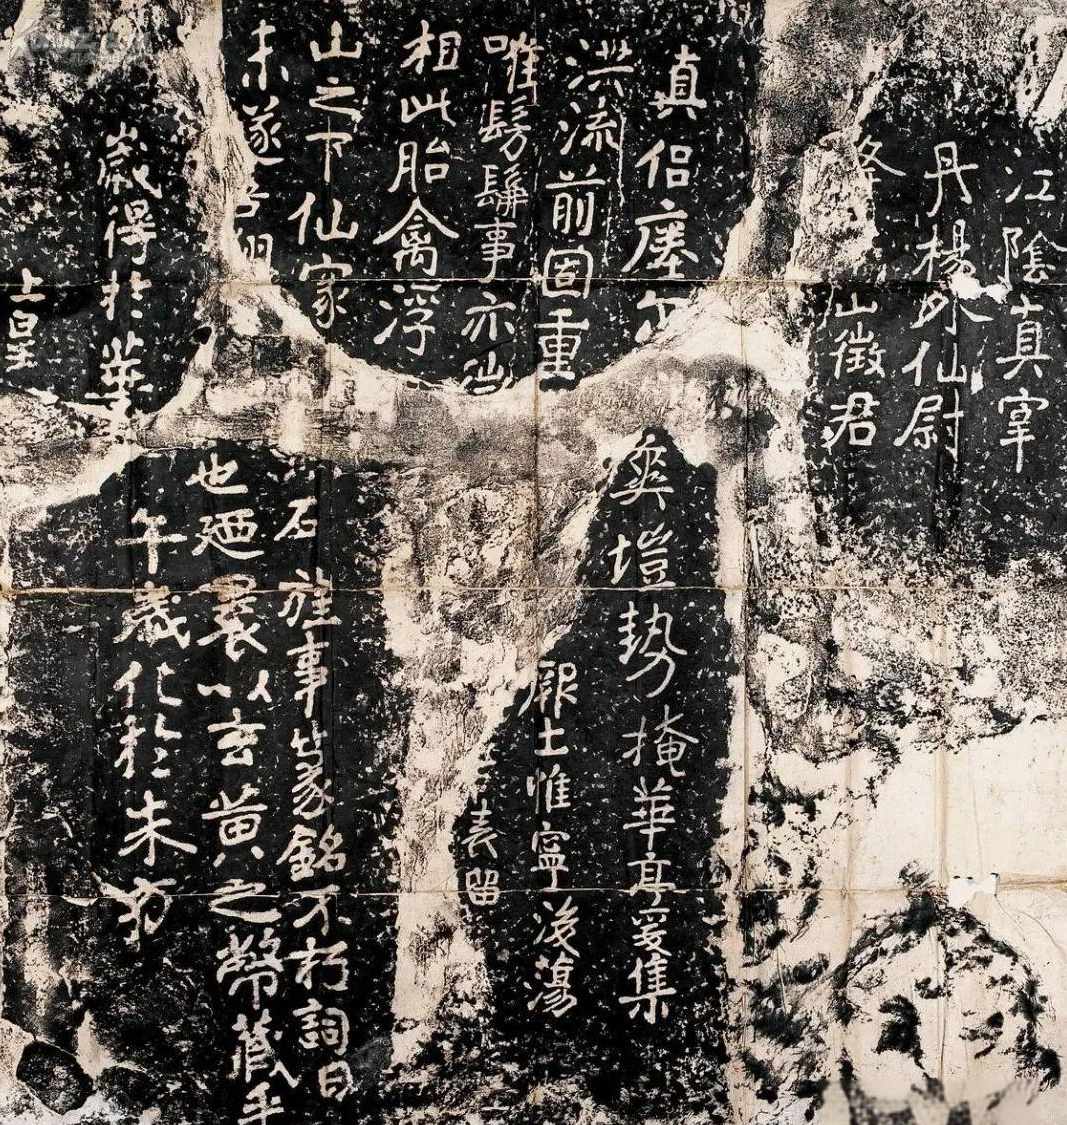 上皇
歲得於華
午歲化於朱方
未遂吾翔
也迺裹以玄黃之幣藏乎
山之下仙家
石旌事篆銘不朽詞曰
相此胎禽浮
唯髣髴事亦
表留
洪流前固重
厥土惟寧後蕩
真侶瘞尒
爽塏勢掩華亭爰集
夅山徵君
丹楊外仙尉
江陰真宰